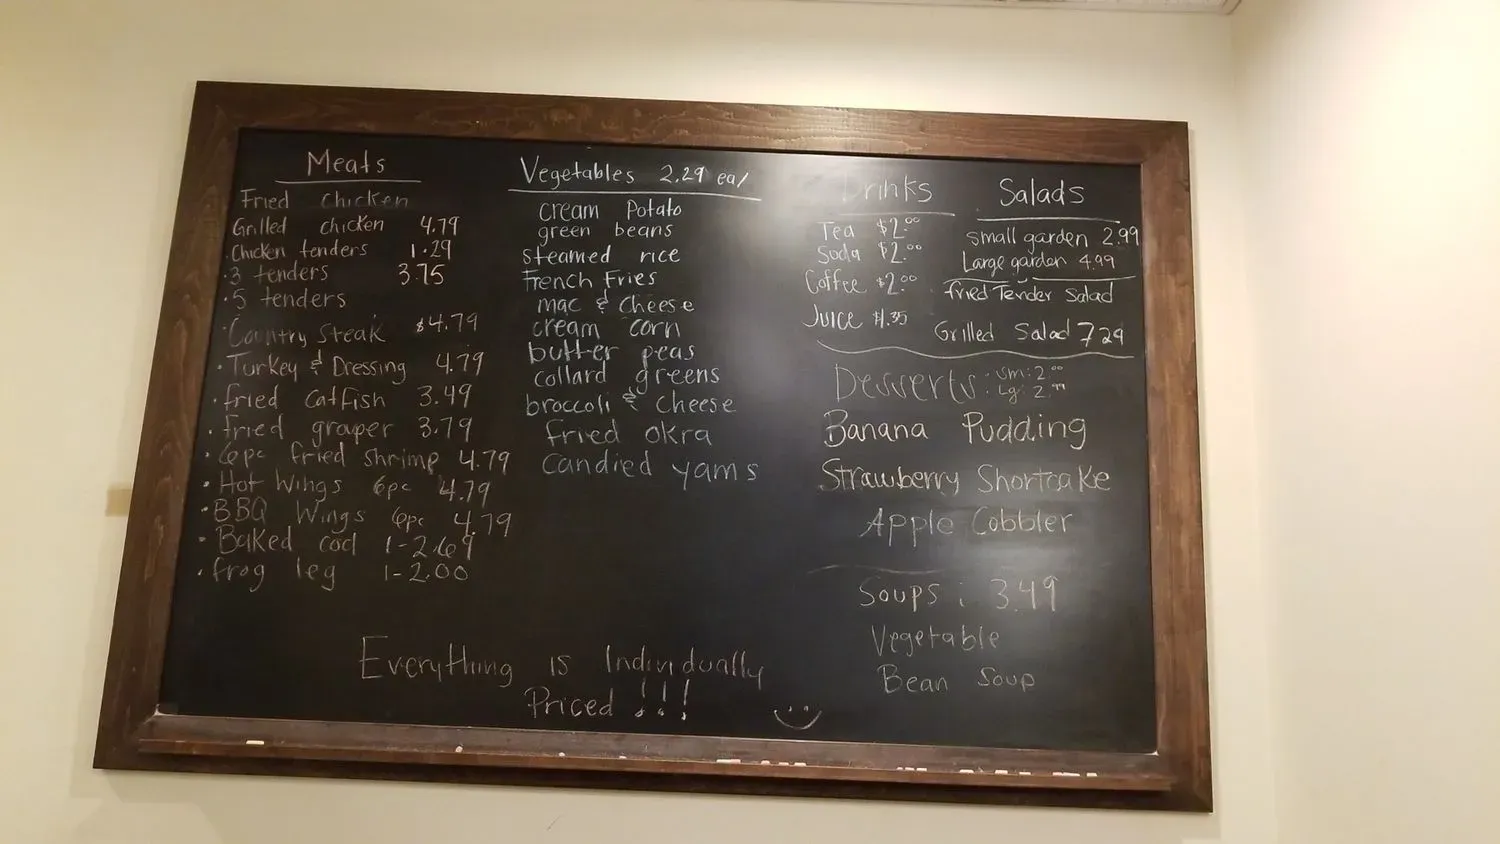 Meats
Fried chicken
Grilled chicken 4.79
Chicken tenders 1.29
·3 tenders 3.75
·5 tenders
·Country Steak $4.79
·Turkey & Dressing 4.79
·fried catfish 3.49
·fried grouper 3.79
·6pc fried shrimp 4.79
·Hot Wings 6pc 4.79
·BBQ Wings 6pc 4.79
·Baked cod 1-2.69
·frog leg 1-2.00
Vegetables 2.29 ea/
cream Potato
green beans
steamed rice
French Fries
mac & Cheese
cream corn
butter peas
collard greens
broccoli & cheese
fried okra
candied yams
Drinks
Tea $2.00
Soda $2.00
Coffee $2.00
Juice $1.35
Salads
small garden 2.99
Large garden 4.99
fried Tender Salad
Grilled Salad 7.29
Desserts: Sm: 2.00
Lg: 2.99
Banana Pudding
Strawberry Shortcake
Apple Cobbler
Soups: 3.49
Vegetable
Bean Soup
Everything is Individually
Priced !!!